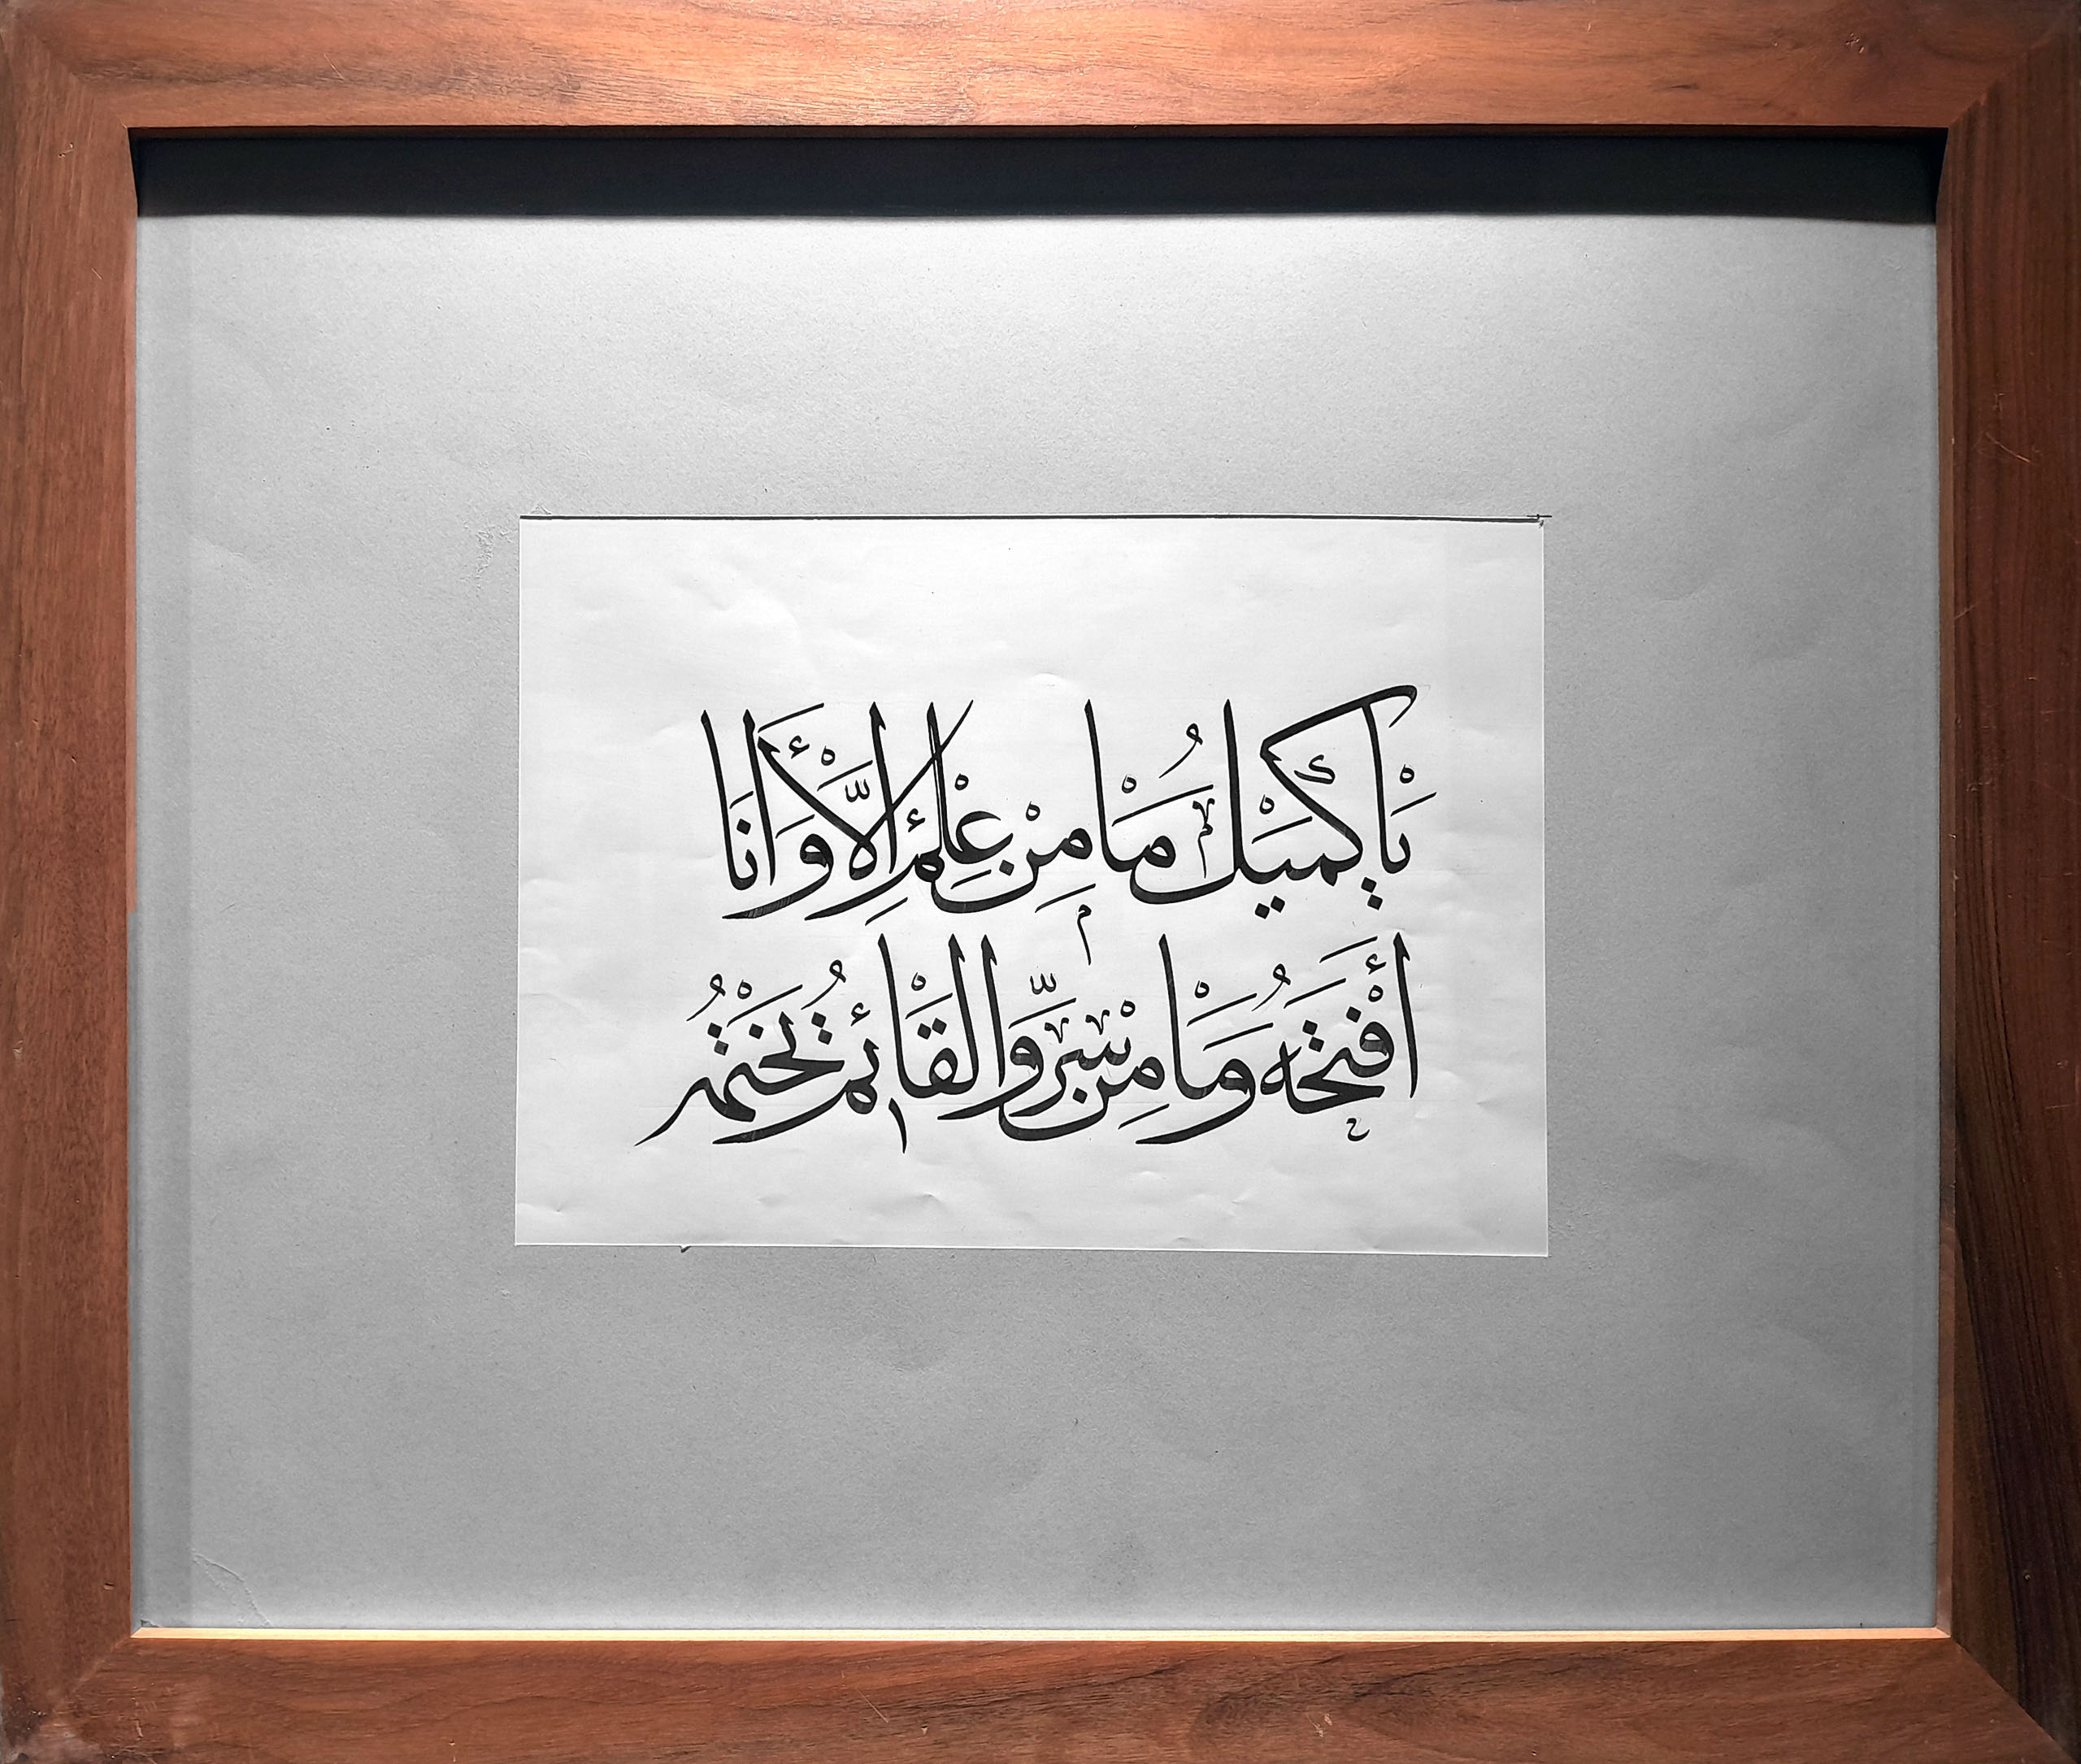 يَاْ كُمَيْلُ مَاْ مِنْ عِلْمٍ إِلَّاْ وَأَنَا
أَفْتَحُهُ وَمَاْ مِنْ سِرٍّ وَالْقَاْئِمُ يَخْتِمُهُ